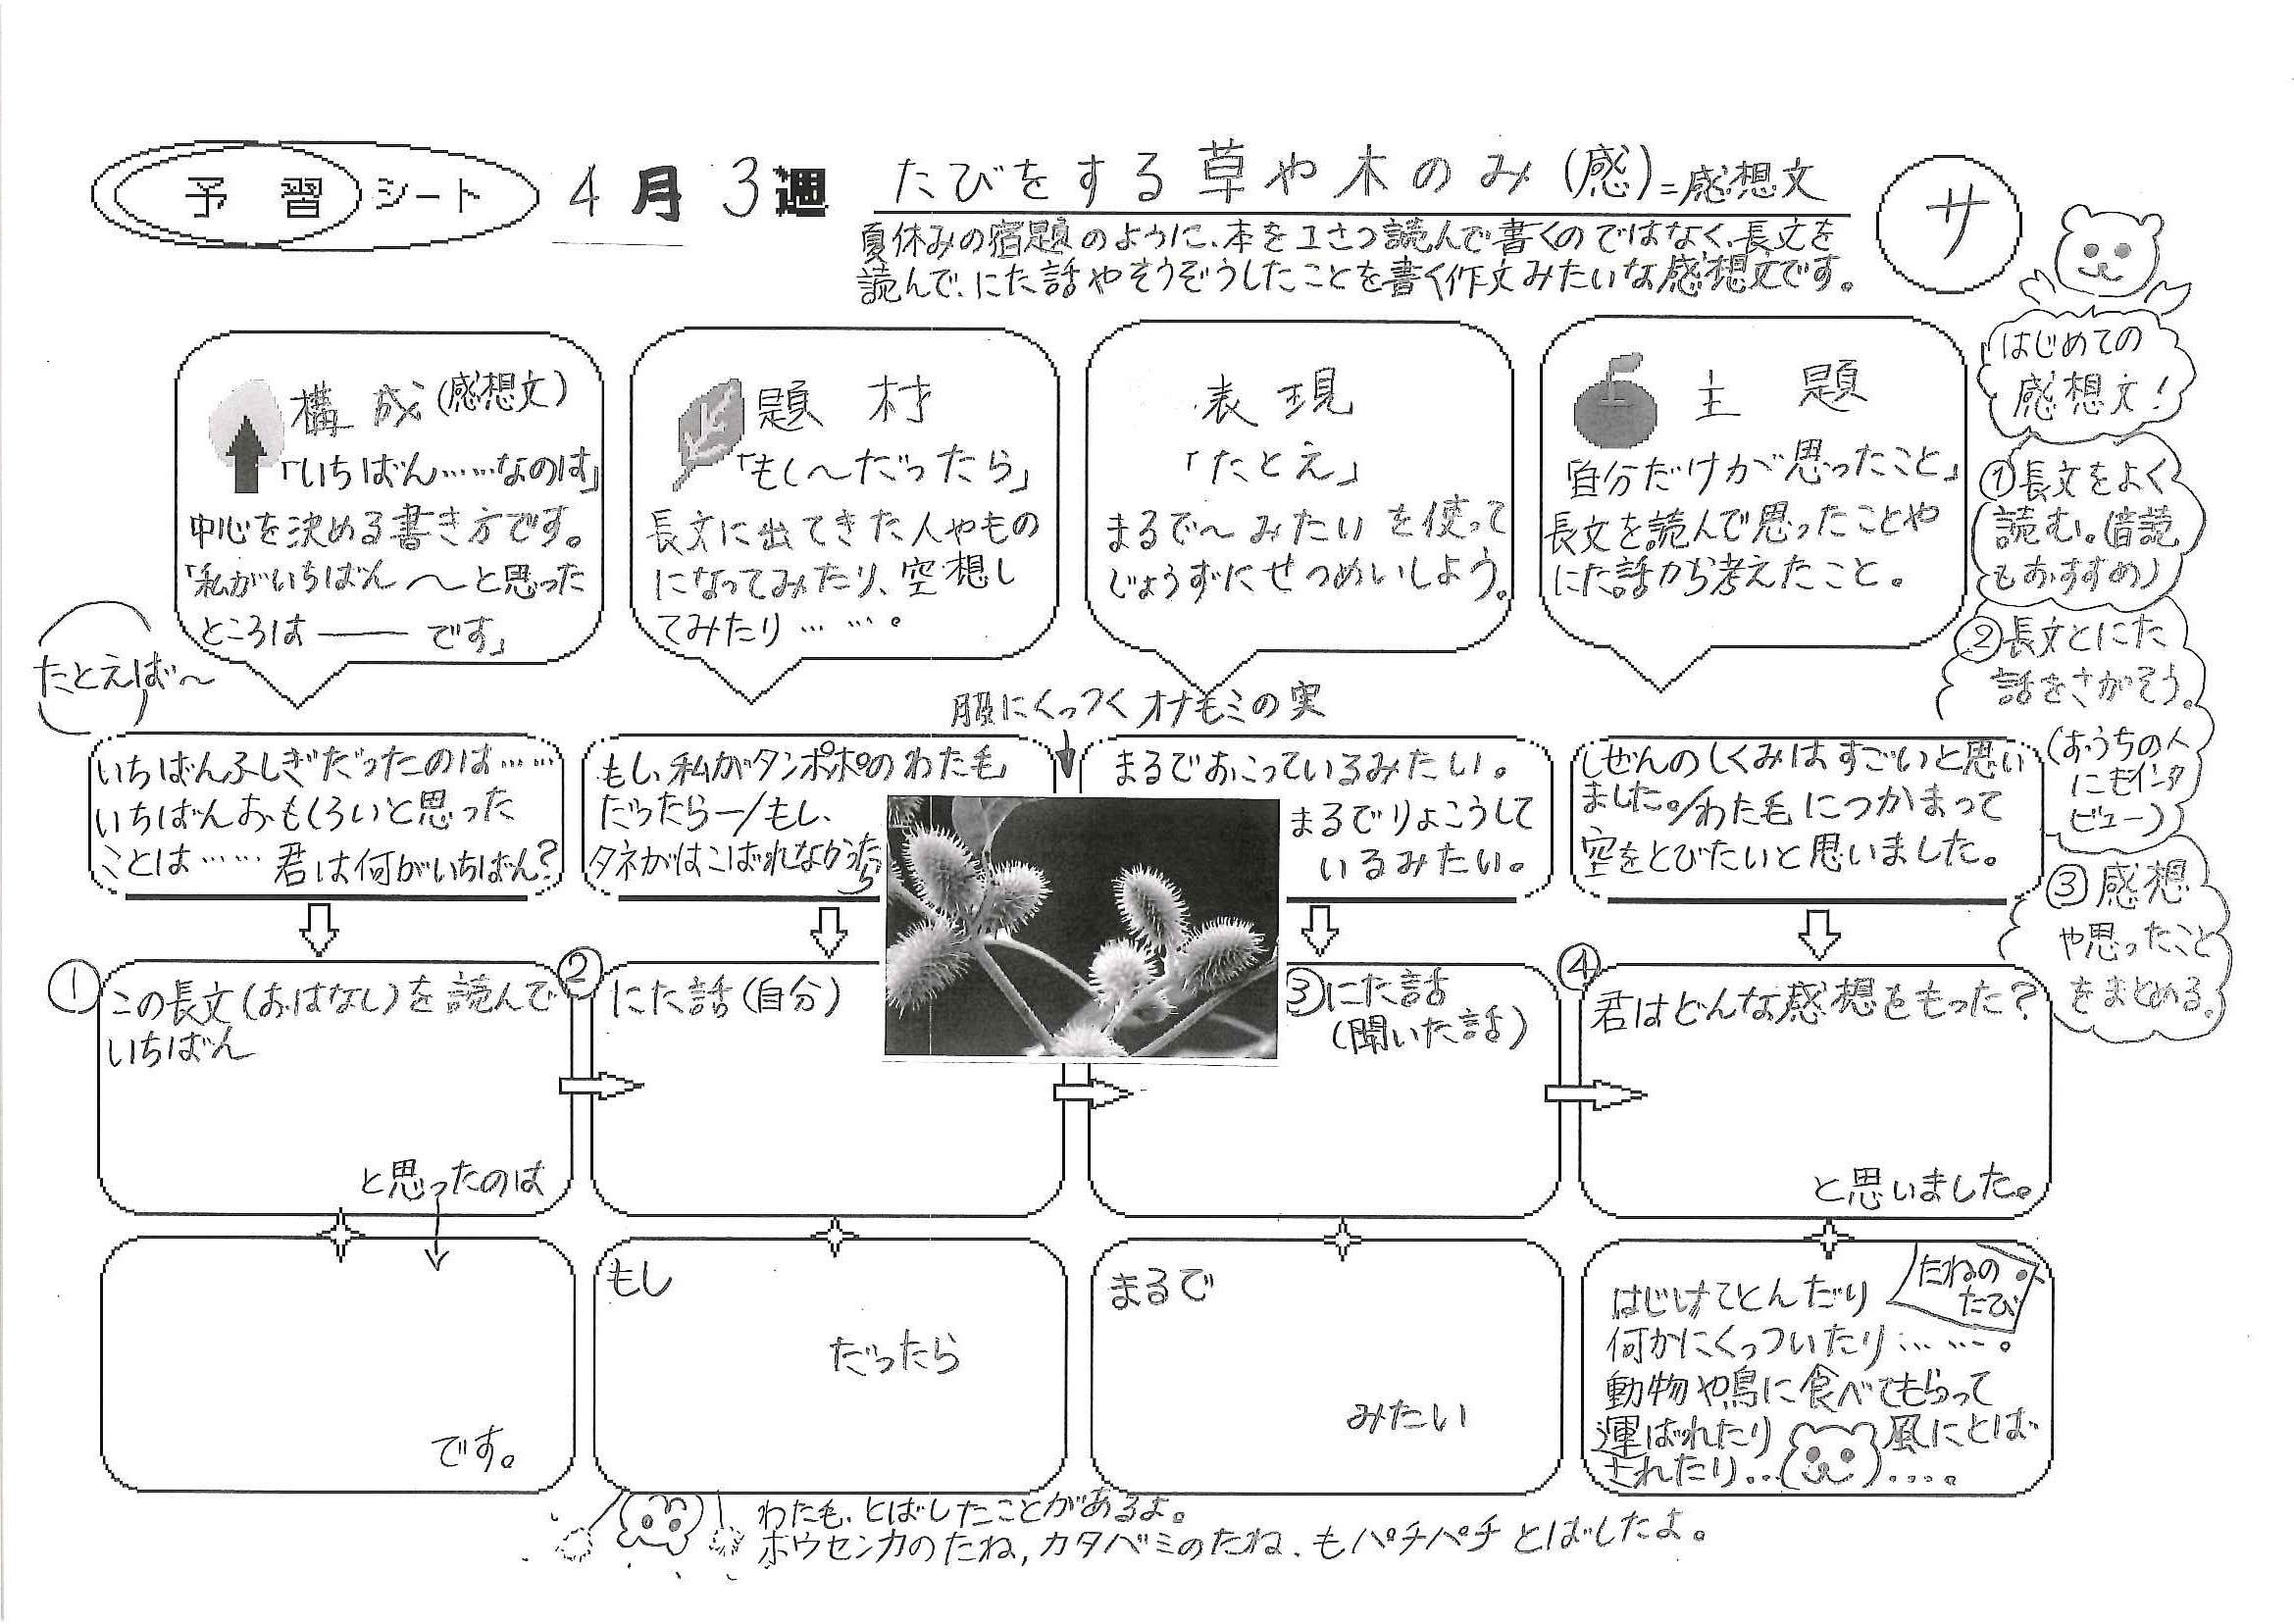 予習シート 4月3週 たびをする草や木のみ(感)=感想文
サ
夏休みの宿題のように、本を1さつ読んで書くのではなく、長文を
読んで、にた話やそうぞうしたことを書く作文みたいな感想文です。
構成(感想文)
「いちばん……なのは」
中心を決める書き方です。
「私がいちばん〜と思った
ところは―― です」
題材
「もし〜だったら」
長文に出てきた人やもの
になってみたり、空想し
てみたり……。
表現
「たとえ」
まるで〜みたい を使って
じょうずにせつめいしよう。
主題
「自分だけが思ったこと」
長文を読んで思ったことや
にた話から考えたこと。
はじめての
感想文!
①長文をよく
読む。(音読
もおすすめ)
②長文とにた
話をさがそう。
(おうちの人
にもインタ
ビュー)
③感想
や思ったこと
をまとめる。
たとえば〜
いちばんふしぎだったのは……
いちばんおもしろいと思った
ことは…… 君は何がいちばん?
もし、私がタンポポのわた毛
だったら―/もし、
タネがはこばれなかったら
服にくっつくオナモミの実
まるでおこっているみたい。
まるでりょこうして
いるみたい。
しぜんのしくみはすごいと思い
ました。/わた毛につかまって
空をとびたいと思いました。
①この長文(おはなし)を読んで
いちばん
と思ったのは
です。
②にた話(自分)
もし
だったら
③にた話
(聞いた話)
まるで
みたい
④君はどんな感想をもった?
と思いました。
たねの
たび
はじけてとんだり
何かにくっついたり……。
動物や鳥に食べてもらって
運ばれたり 風にとば
されたり… ….
わた毛、とばしたことがあるよ。
ホウセンカのたね,カタバミのたね、もパチパチとばしたよ。